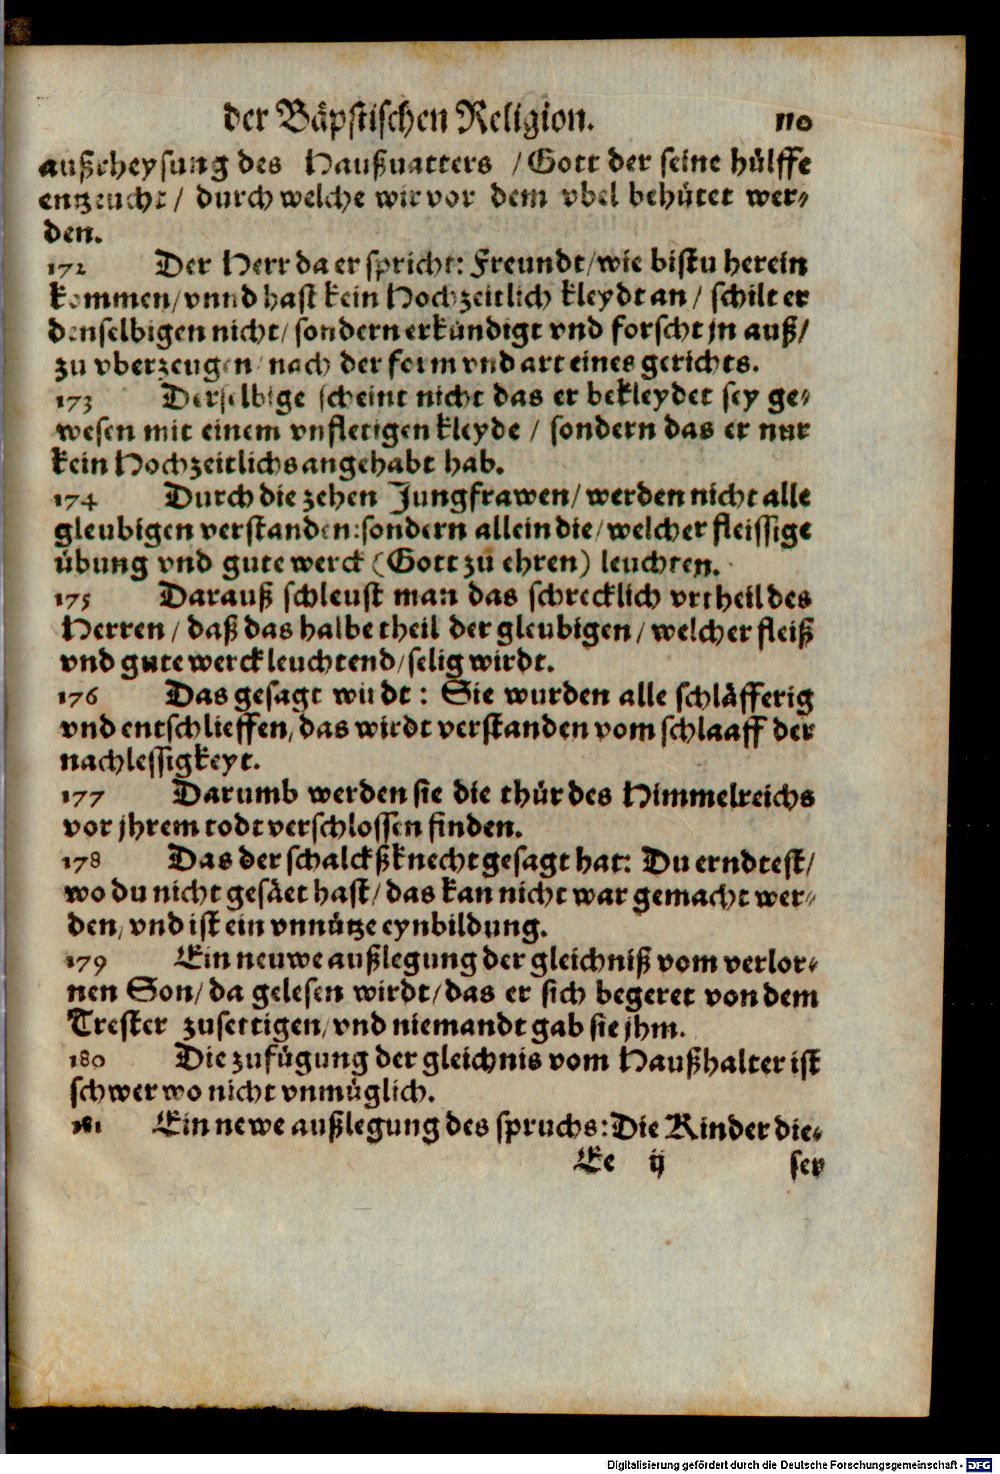 der Bäpstischen Religion. 110
außrheysung des Haußuatters / Gott der seine hülffe
entzeucht / durch welche wir vor dem vbel behütet wer-
den.
172 Der Herr da er spricht: Freundt / wie bistu herein
kommen / vnnd hast kein Hochzeitlich kleydt an / schilt er
denselbigen nicht / sondern erkündigt vnd forscht jn auß /
zu vberzeugen / nach der form vnd art eines gerichts.
173 Derselbige scheint nicht das er bekleydet sey ge-
wesen mit einem vnfletigen kleyde / sondern das er nur
kein Hochzeitlichs angehabt hab.
174 Durch die zehen Jungfrawen / werden nicht alle
gleubigen verstanden: sondern allein die / welcher fleissige
übung vnd gute werck (Gott zu ehren) leuchten.
175 Darauß schleust man das schrecklich vrtheil des
Herren / daß das halbe theil der gleubigen / welcher fleiß
vnd gute werck leuchtend / selig wirdt.
176 Das gesagt wirdt: Sie wurden alle schläfferig
vnd entschlieffen / das wirdt verstanden vom schlaaff der
nachlessigkeyt.
177 Darumb werden sie die thür des Himmelreichs
vor jhrem todt verschlossen finden.
178 Das der schalckßknecht gesagt hat: Du erndtest /
wo du nicht gesäet hast / das kan nicht war gemacht wer-
den / vnd ist ein vnnütze eynbildung.
179 Ein neuwe außlegung der gleichniß vom verlor-
nen Son / da gelesen wirdt / das er sich begeret von dem
Trester zusettigen / vnd niemandt gab sie jhm.
180 Die zufügung der gleichnis vom Haußhalter ist
schwer wo nicht vnmüglich.
181 Ein newe außlegung des spruchs: Die Kinder die-
Ee ij sey
Digitalisierung gefördert durch die Deutsche Forschungsgemeinschaft - DFG